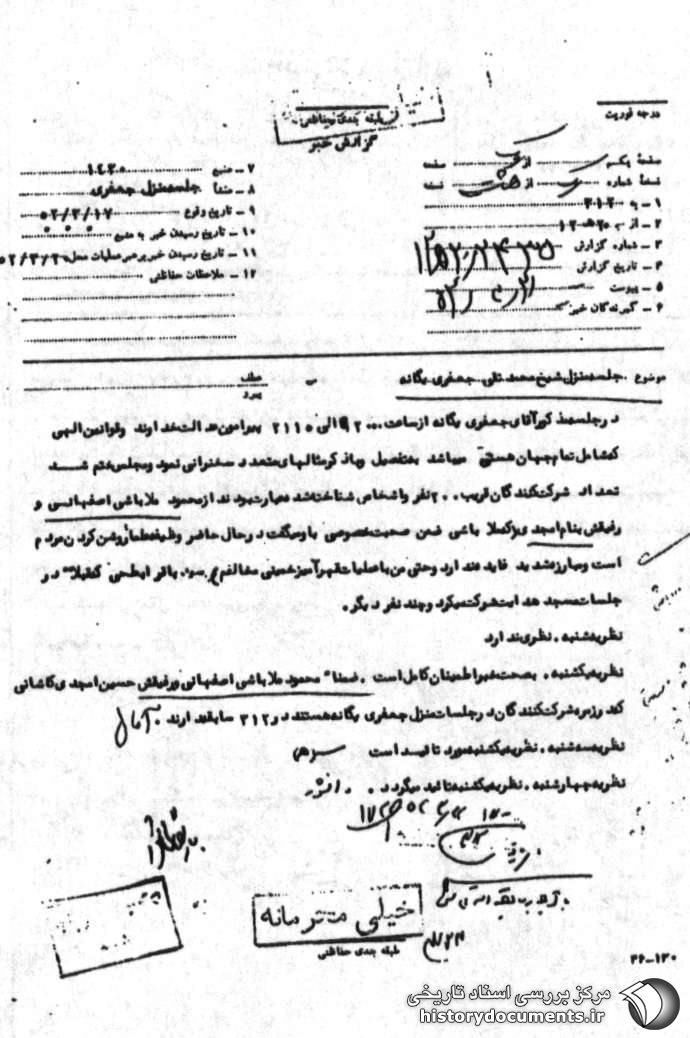 طبقه بندی حفاظتی
گزارش خبر
درجه فوریت
صفحه یکم از صفحه
نسخه شماره از هشت نسخه
۱ - به ۳۱۲
۲ - از ۲۰ ه ۱۲
۳ - شماره گزارش
۴ - تاریخ گزارش
۵ - پیوست
۶ - گیرندگان خبر
۷ - منبع ۱۴۳۰
۸ - منشأ جلسه منزل جعفری
۹ - تاریخ وقوع ۵۲/۳/۱۷
۱۰ - تاریخ رسیدن خبر به منبع
۱۱ - تاریخ رسیدن خبر به رهبر عملیات محل ۵۲/۳/۲۰
۱۲ - ملاحظات حفاظتی
موضوع . جلسه منزل شیخ محمد تقی جعفری یگانه
عطف
پیرو
در جلسه مذکور آقای جعفری یگانه از ساعت الی ۲۱۱۵ پیرامون عدالت خداوند و قوانین الهی
که شامل تمام جهان هستی میباشد بتفصیل و با ذکر مثالهای متعدد سخنرانی نمود و مجلس ختم شد
تعداد شرکت کنندگان قریب ۲۰۰ نفر و اشخاص شناخته شده عبارت بودند از محمود ملاباشی اصفهانی و
رفیقش بنام امجدی که ملا باشی ضمن صحبت خصوصی با وی گفت در حال حاضر وظیفه علما روشن کردن مردم
است و مبارزه شدید فایده ندارد و حتی من با عملیات قهرآمیز خمینی مخالفم . باقر ابطحی که قبلاً در
جلسات مسجد هدایت شرکت میکرد و چند نفر دیگر .
نظریه شنبه . نظری ندارد
نظریه یکشنبه . بصحت خبر اطمینان کامل است . ضمناً محمود ملاباشی اصفهانی و رفیقش حسین امجدی کاشانی
که در زمره شرکت کنندگان در جلسات منزل جعفری یگانه هستند در ۳۱۲ سابقه دارند .
نظریه سه شنبه . نظریه یکشنبه مورد تائید است
نظریه چهارشنبه . نظریه یکشنبه تائید میگردد .
خیلی محرمانه
طبقه بندی حفاظتی
۳۶-۱۳۰
مرکز بررسی اسناد تاریخی
historydocuments.ir